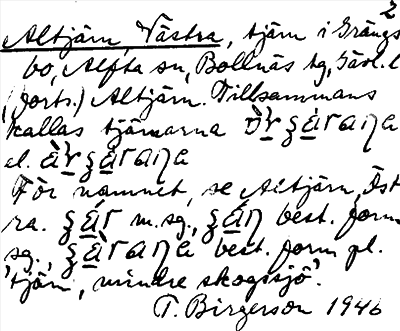 2
Altjärn, Västra, tjärn i Grängs
bo, Alfta sn, Bollnäs tg, Gävl. l
(forts.) Altjärn. Tillsammans
kallas tjärnarna
el.
För namnet, se Altjärn, Öst
ra. m. sg., best. form
sg., best. form pl.
'tjärn, mindre skogssjö'.
T. Birgerson 1946